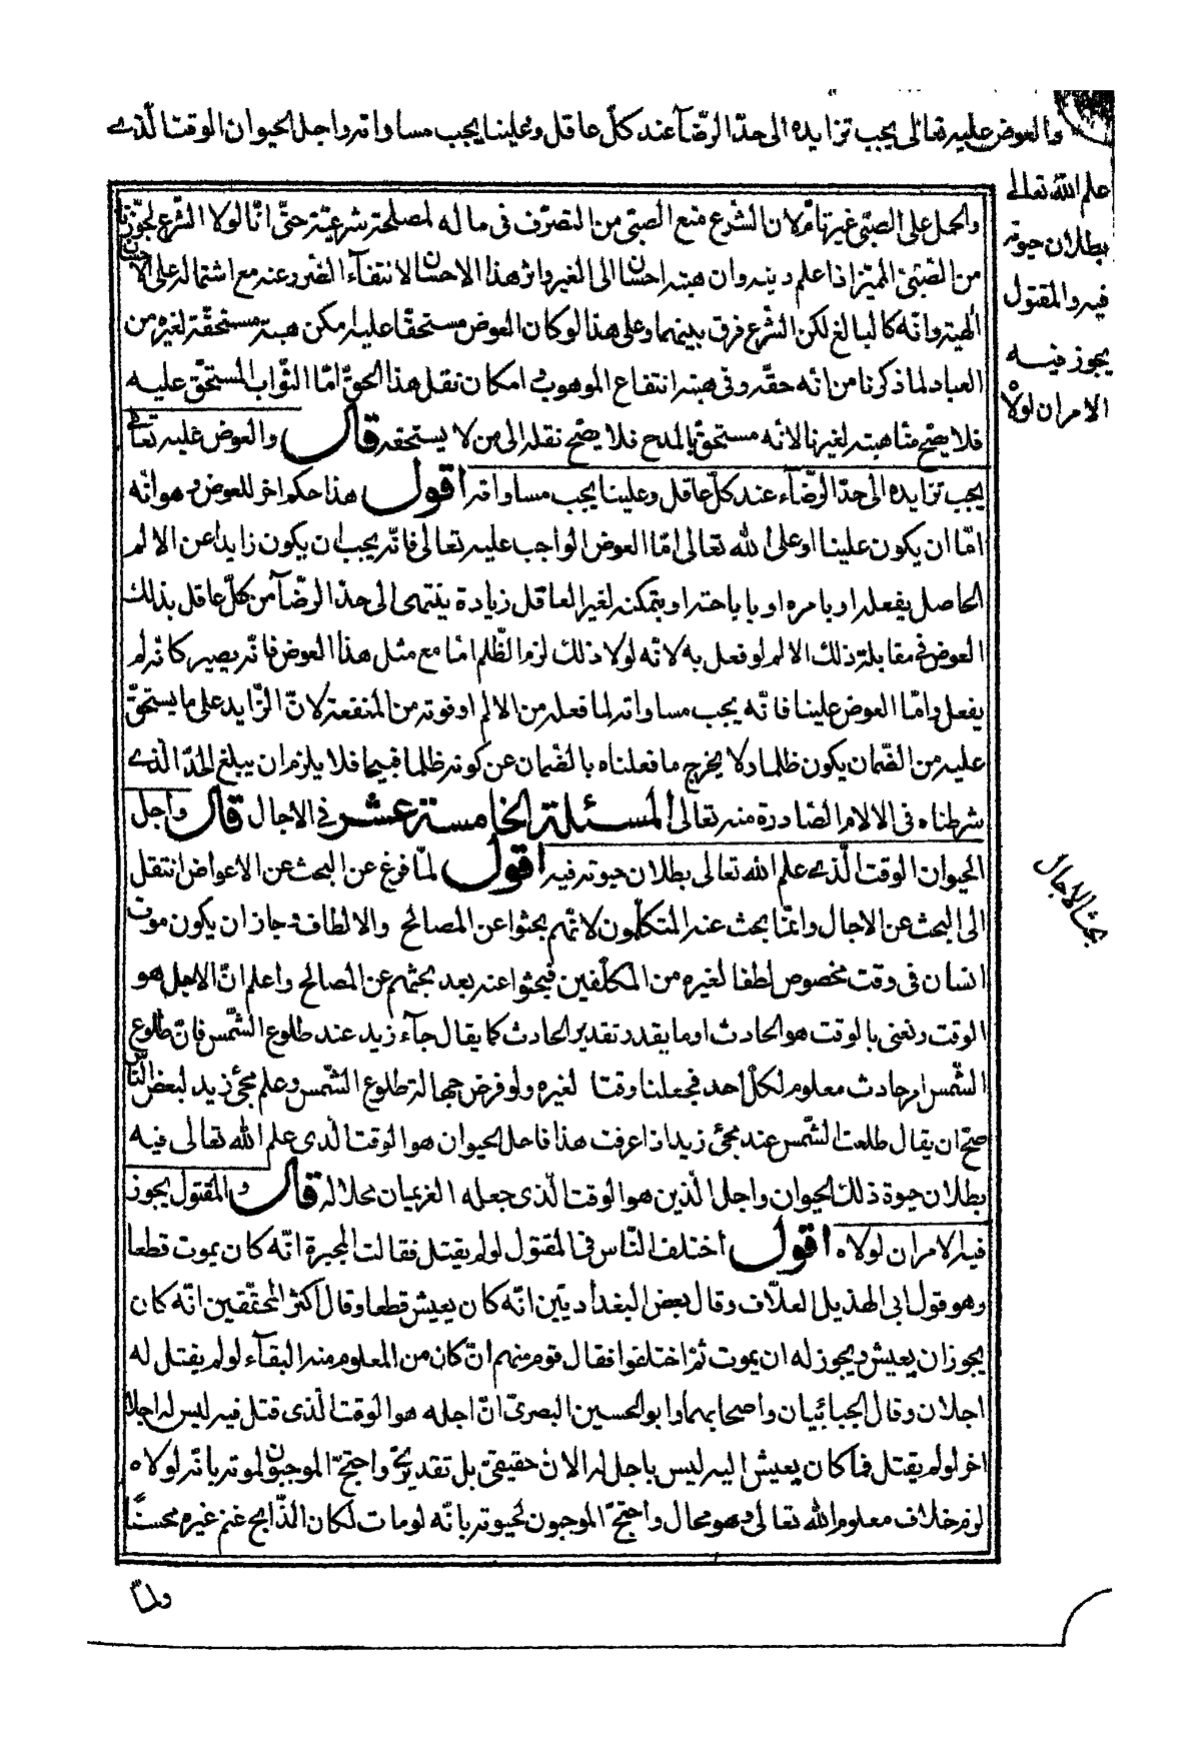 والعوض عليه تعالى يجب تزايده الى حدّ الرّضآء عند كلّ عاقل وعلينا يجب مساواته واجل الحيوان الوقت الّذى
علم اللّه تعالى
بطلان حيوته
فيه والمقتول
يجوز فيه
الامران لولاه
والحمل على الصّبىّ غير تامّ لان الشّرع منع الصّبىّ من التصرّف فى ماله لمصلحة شرعيّة حتّى انّا لولا الشّرع لجوّزنا
من الصّبىّ المميّز اذا علم دينه وان هبته احسان الى الغير واثر هذا الاحسان لانتفآء الضّرر عنه مع اشتماله على الاحسان
الهبة وانّه كالبالغ لكن الشّرع فرق بينهما وعلى هذا لو كان العوض مستحقّا عليه امكن هبته مستحقّة لغيره من
العباد لما ذكرنا من انه حقّه وفى هبته انتفاع الموهوب وامكان نقل هذا الحقّ امّا الثّواب المستحقّ عليه
فلا يصّح منّا هبته لغيرنا لانّه مستحقّ بالمدح فلا يصّح نقله الى من لا يستحقه قال والعوض عليه تعالى
يجب تزايده الى حدّ الرّضآء عند كلّ عاقل وعلينا يجب مساواته اقول هذا حكم اخر للعوض وهو انّه
امّا ان يكون علينا او على اللّه تعالى امّا العوض الواجب عليه تعالى فانّه يجب ان يكون زايدا عن الالم
الحاصل بفعله او بامره او باباحته او بتمكنه لغير العاقل زيادة ينتهى الى حدّ الرّضآء من كلّ عاقل بذلك
العوض فى مقابلة ذلك الالم لو فعل به لانّه لولا ذلك لزم الظّلم امّا مع مثل هذا العوض فانّه يصير كانّه لم
يفعل وامّا العوض علينا فانّه يجب مساواته لما فعله من الالم او فوته من المنفعة لانّ الزّايد على ما يستحقّ
عليه من الضّمان يكون ظلما ولا يخرج ما فعلناه بالضّمان عن كونه ظلما قبيحا فلا يلزم ان يبلغ الحدّ الّذى
شرطناه فى الالام الصّادرة منه تعالى المسئلة الخامسة عشر فى الاجال قال واجل
الحيوان الوقت الّذى علم اللّه تعالى بطلان حيوته فيه اقول لمّا فرغ عن البحث عن الاعواض انتقل
الى البحث عن الاجال وانّما بحث عنه المتكلّمون لانّهم بحثوا عن المصالح والالطاف وجاز ان يكون موت
انسان فى وقت مخصوص لطفا لغيره من المكلّفين فبحثوا عنه بعد بحثهم عن المصالح واعلم انّ الاجل هو
الوقت ونعنى بالوقت هو الحادث او ما يقدر تقدير الحادث كما يقال جآء زيد عند طلوع الشّمس فانّ طلوع
الشّمس امر حادث معلوم لكلّ احد فجعلنا وقتا لغيره ولو فرض جهالة طلوع الشّمس وعلم مجئ زيد لبعض النّاس
صحّ ان يقال طلعت الشّمس عند مجئ زيد اذا عرفت هذا فاجل الحيوان هو الوقت الّذى علم اللّه تعالى فيه
بطلان حيوة ذلك الحيوان واجل الدّين هو الوقت الّذى جعله الغريمان محلا له قال والمقتول يجوز
فيه الامران لولاه اقول اختلف النّاس فى المقتول لو لم يقتل فقالت المجبرة انّه كان يموت قطعا
وهو قول ابى الهذيل العلّاف وقال بعض البغداديّين انّه كان يعيش قطعا وقال اكثر المحقّقين انّه كان
يجوز ان يعيش ويجوز له ان يموت ثمّ اختلفوا فقال قوم منهم انّ كان من المعلوم منه البقآء لو لم يقتل له
اجلان وقال الجبائيان واصحابهما وابو الحسين البصرىّ انّ اجله هو الوقت الّذى قتل فيه ليس له اجلا
اخر لو لم يقتل فما كان يعيش اليه ليس باجل له الان حقيقىّ بل تقديرىّ واحتجّ الموجبون لموته بانّه لولاه
لزم خلاف معلوم اللّه تعالى وهو محال واحتجّ الموجبون لحيوته بانّه لو مات لكان الذّابح غنم غيره محسنًا
بحث الاجال
ولمّا